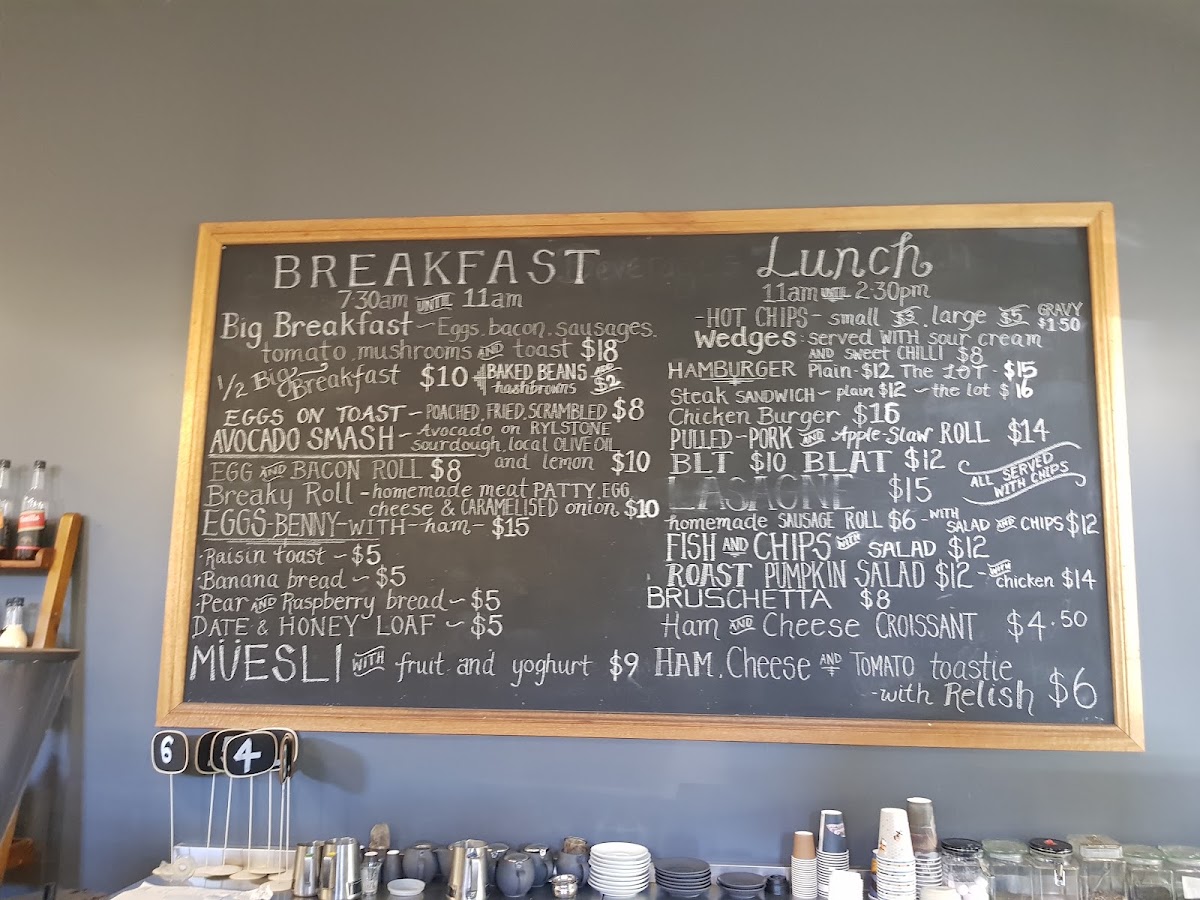 BREAKFAST
7·30am UNTIL 11am
Big Breakfast ~ Eggs, bacon, sausages,
tomato, mushrooms AND toast $18
1/2 Big Breakfast $10 + BAKED BEANS AND
hashbrowns $2
EGGS ON TOAST - POACHED, FRIED, SCRAMBLED $8
AVOCADO SMASH - Avocado on RYLSTONE
sourdough, local OLIVE OIL
and lemon $10
EGG AND BACON ROLL $8
Breaky Roll - homemade meat PATTY, EGG,
cheese & CARAMELISED onion, $10
EGGS-BENNY-WITH-ham- $15
·Raisin toast ~ $5
·Banana bread ~ $5
·Pear AND Raspberry bread ~ $5
DATE & HONEY LOAF ~ $5
MÜESLI WITH fruit and yoghurt $9
Lunch
11am UNTIL 2·30pm
-HOT CHIPS- small $3, large $5 GRAVY
$1·50
Wedges: served WITH sour cream
AND sweet CHILLI $8
HAMBURGER Plain-$12 The LOT - $15
Steak SANDWICH - plain $12 ~ the lot $16
Chicken Burger $16
PULLED-PORK AND Apple-Slaw ROLL $14
BLT $10 BLAT $12
ALL SERVED
WITH CHIPS
LASAGNE $15
homemade SAUSAGE ROLL $6 - WITH SALAD AND CHIPS $12
FISH AND CHIPS WITH SALAD $12
ROAST PUMPKIN SALAD $12 - WITH chicken $14
BRUSCHETTA $8
Ham AND Cheese CROISSANT $4·50
HAM, Cheese AND TOMATO toastie
-with Relish $6
6
4